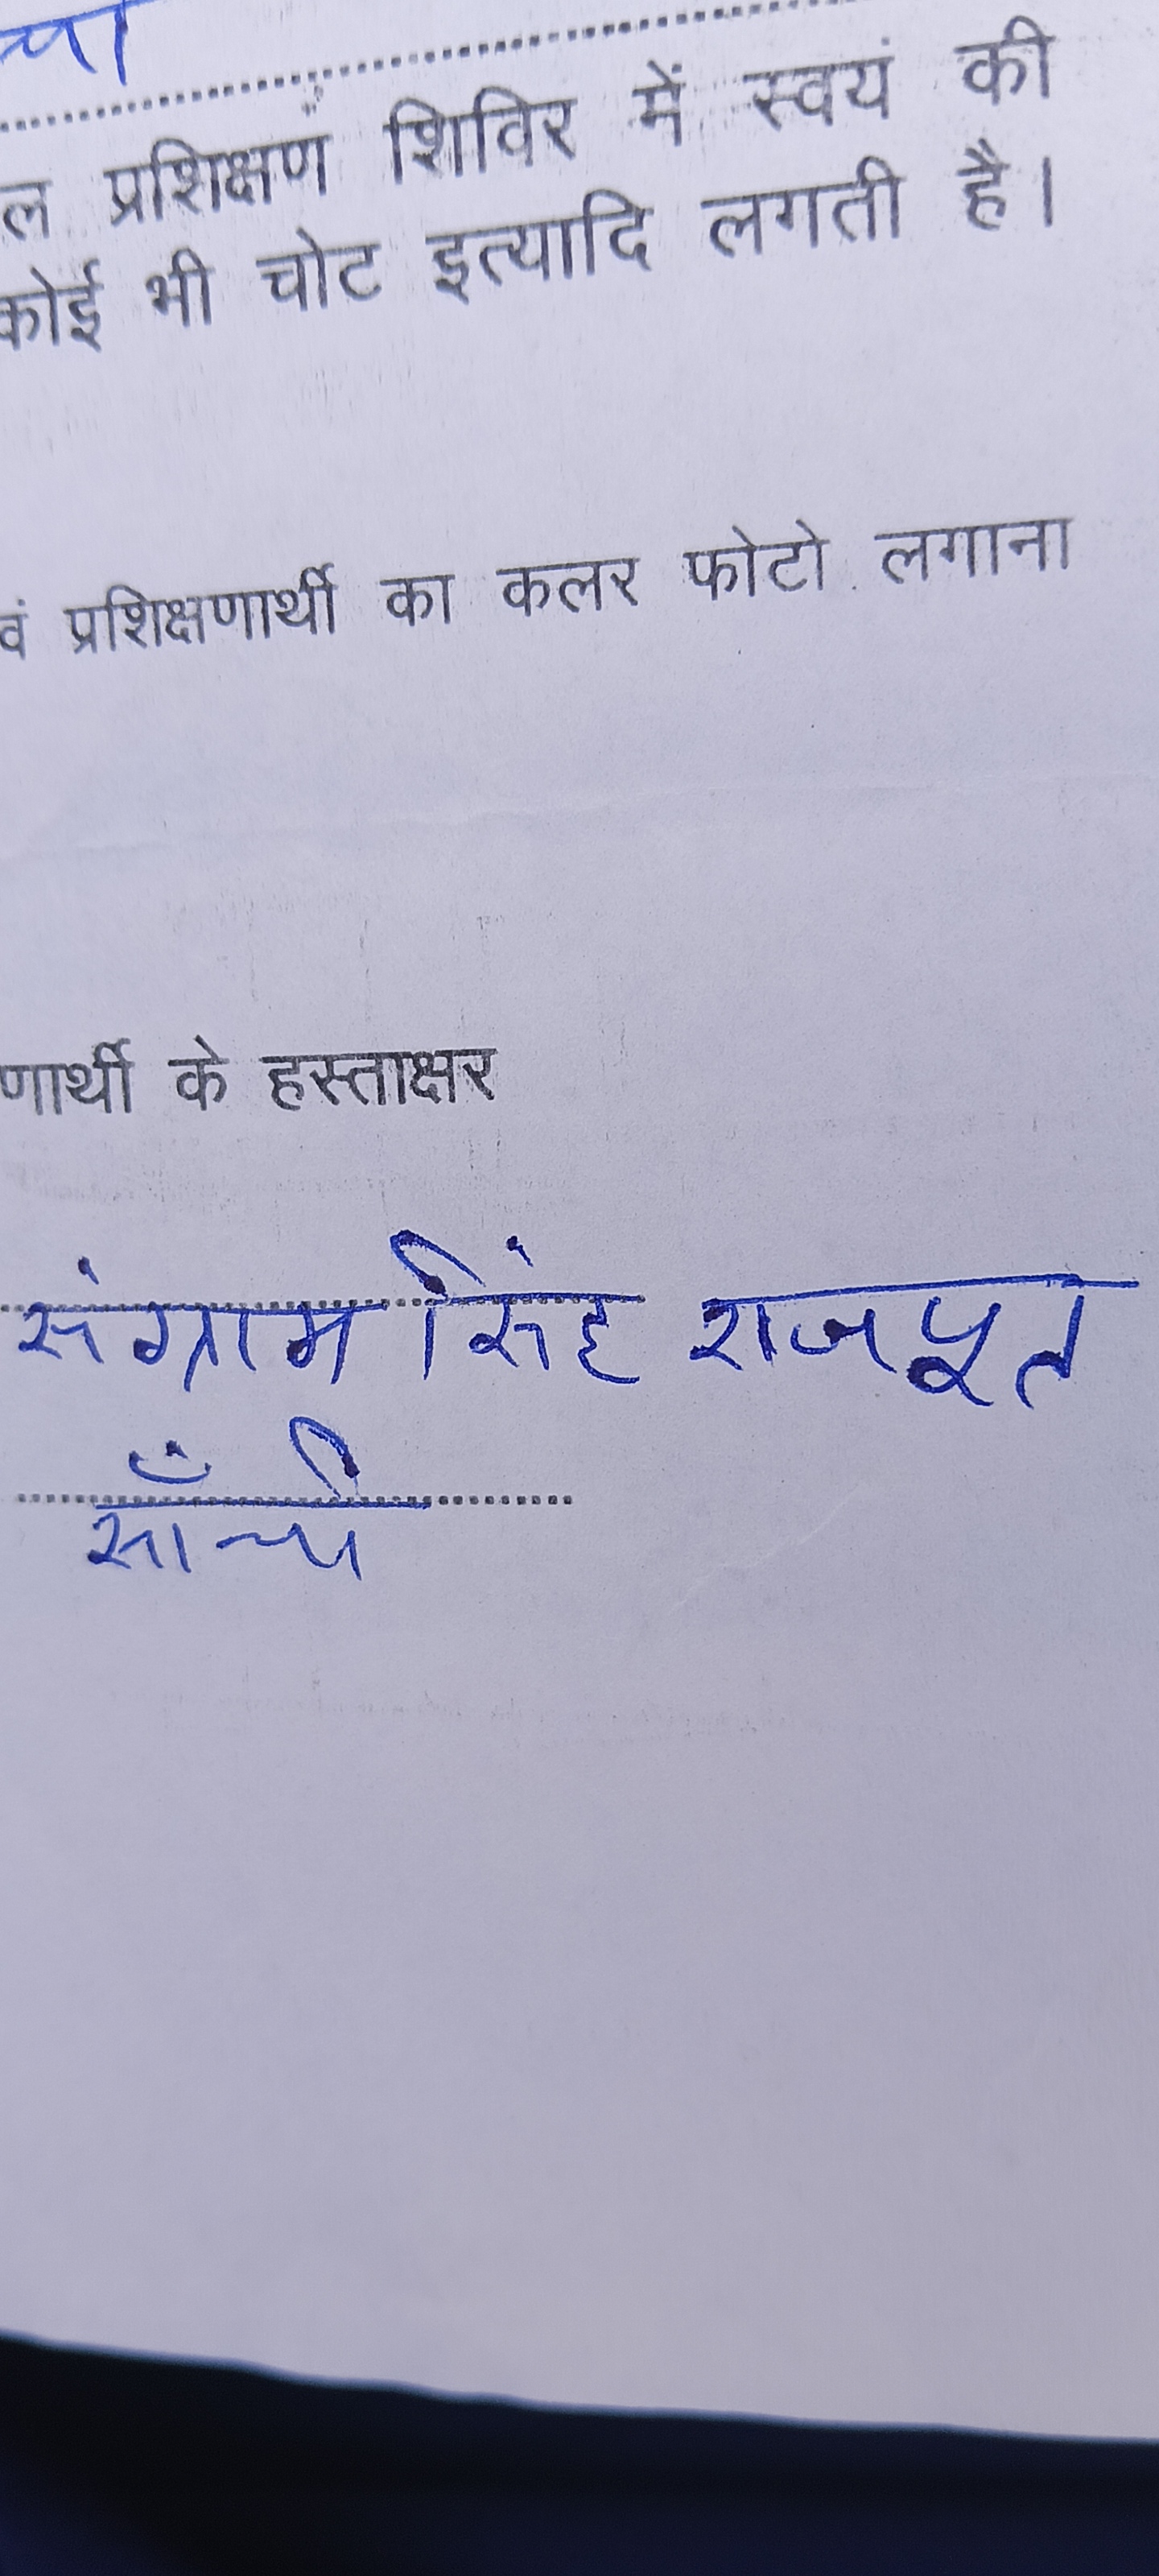 ल प्रशिक्षण शिविर में स्वयं की
कोई भी चोट इत्यादि लगती है।
वं प्रशिक्षणार्थी का कलर फोटो लगाना
णार्थी के हस्ताक्षर
संग्राम सिंह राजपूत
साँची